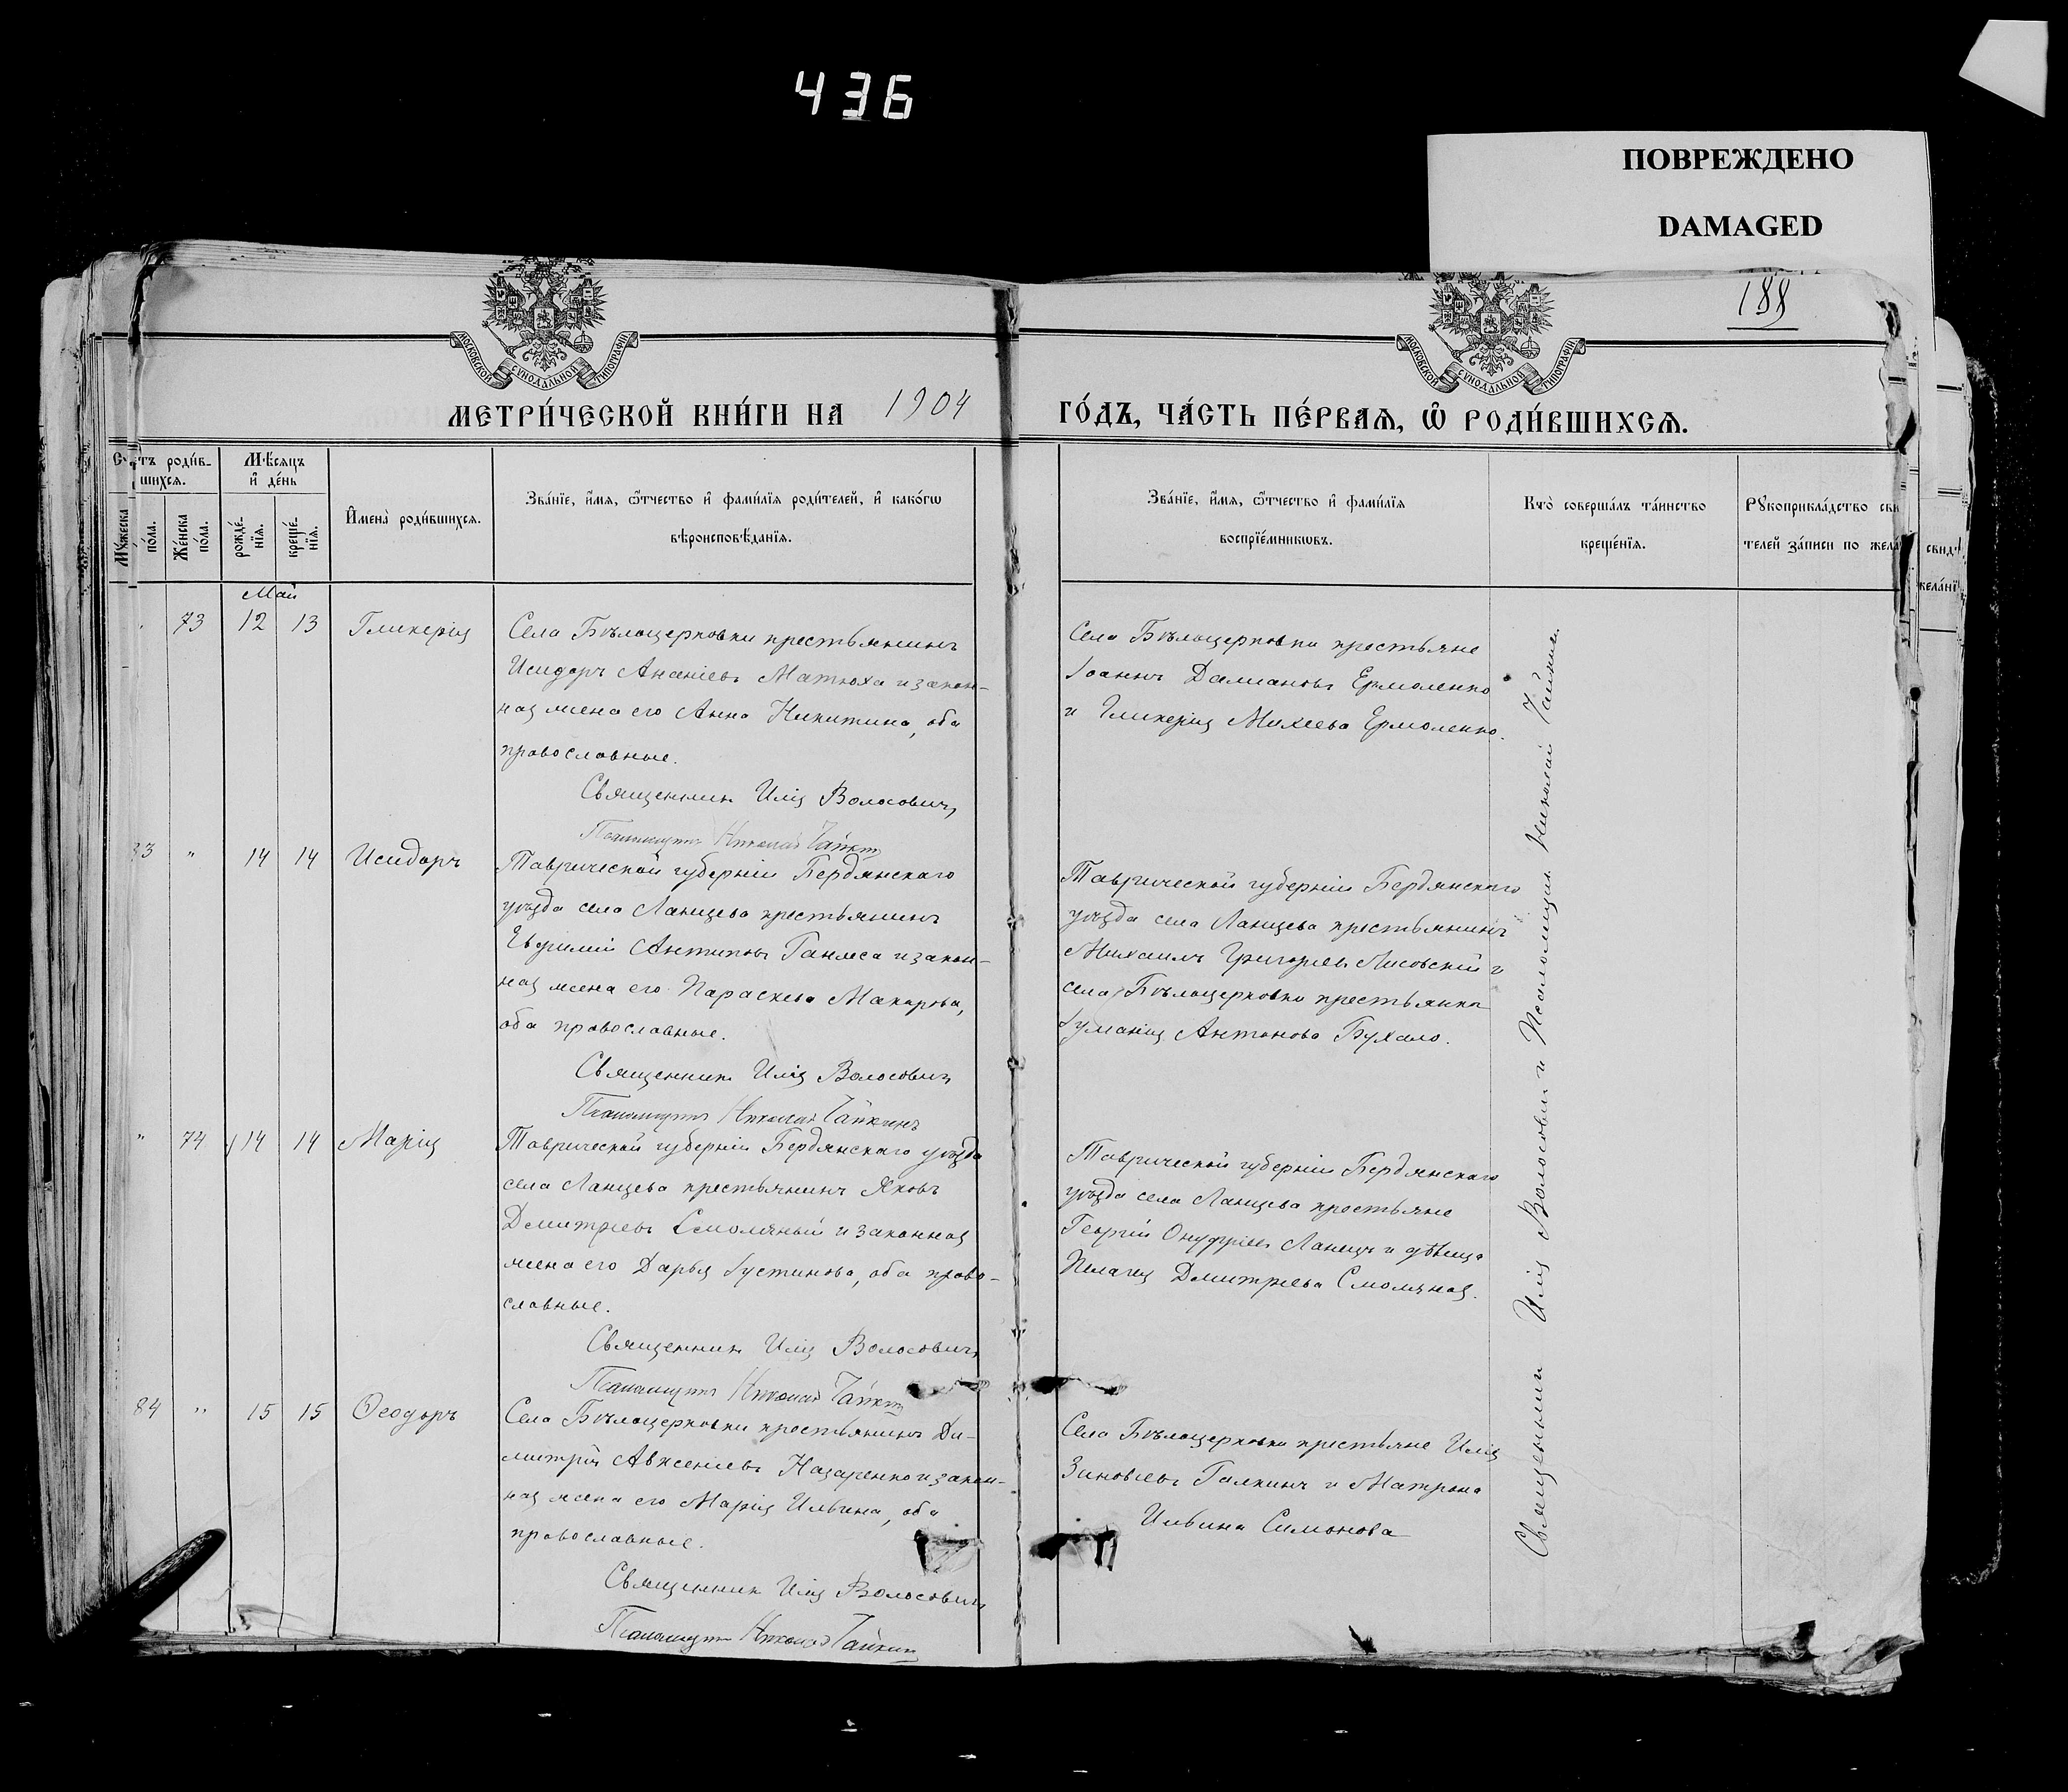 436
ПОВРЕЖДЕНО
DAMAGED
188
МОСКОВСКОЙ СѴНОДАЛЬНОЙ ТИПОГРАФІИ
МОСКОВСКОЙ СѴНОДАЛЬНОЙ ТИПОГРАФІИ
МЕТРИ́ЧЕСКОЙ КНИ́ГИ НА 1904
ГО́ДЪ, ЧА́СТЬ ПЕ́РВАѦ, Ѡ҆ РОДИ́ВШИХСѦ.
тъ роди́в-
шихсѧ.
Мѣ́сѧцъ
и҆ де́нь
Мꙋ́жеска
по́ла.
Же́нска
по́ла.
рожде́-
нїѧ.
креще́-
нїѧ.
И҆мена̀ роди́вшихсѧ.
Зва́нїе, и҆́мѧ, ѻ҆́тчество и҆ фами́лїѧ роди́телей, и҆ како́гѡ
вѣроисповѣ́данїѧ.
Зва́нїе, и҆́мѧ, ѻ҆́тчество и҆ фами́лїѧ
воспрїе́мникѡвъ.
Кто̀ соверша́лъ та́инство
креще́нїѧ.
Рꙋкоприкла́дство сви
телей за́писи по жела
свид
жела́нї
Май
73 12 13 Гликерія
Села Бѣлоцерковки крестьянинъ
Исидоръ Ананіевъ Матюха и закон-
ная жена его Анна Никитина, оба
православные.
Священникъ Илія Волосовичъ
Псаломщикъ Николай Чайкин
Села Бѣлоцерковки крестьяне
Іоаннъ Даміановъ Ермоленко
и Гликерія Михеева Ермоленко.
83 " 14 14 Исидоръ
Таврической губерніи Бердянскаго
уѣзда села Ланцева крестьянинъ
Евфимій Антиповъ Ганжса и закон-
ная жена его Параскева Макарова,
оба православные.
Священникъ Илія Волосовичъ
Псаломщикъ Николай Чайкинъ
Таврической губерніи Бердянскаго
уѣзда села Ланцева крестьянинъ
Михаилъ Григорьевъ Лисовскій и
села Бѣлоцерковки крестьянка
Іуліанія Антонова Бухало.
" 74 14 14 Марія
Таврической губерніи Бердянскаго уѣзда
села Ланцева крестьянинъ Яковъ
Дмитріевъ Смоляный и законная
жена его Дарья Іустинова, оба право-
славные.
Священникъ Илія Волосовичъ
Псаломщикъ Николай Чайкин
Таврической губерніи Бердянскаго
уѣзда села Ланцева крестьяне
Георгій Онуфріевъ Ланецъ и дѣвица
Пелагея Дмитріева Смоляная.
84 " 15 15 Ѳеодоръ
Села Бѣлоцерковки крестьянинъ Ди-
митрій Авксеніевъ Назаренко и закон-
ная жена его Марія Ильина, оба
православные.
Священникъ Илія Волосовичъ
Псаломщикъ Николай Чайкин
Села Бѣлоцерковки крестьяне Илія
Зиновіевъ Галкинъ и Матрона
Ильина Симонова
Священникъ Илія Волосовичъ и Псаломщикъ Николай Чайкин